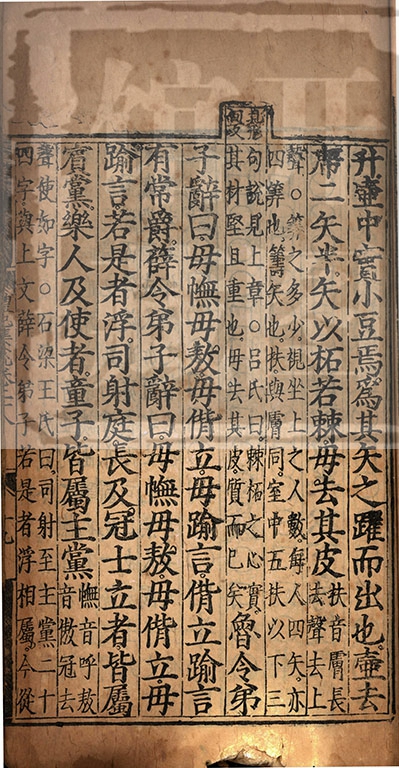 斗壺中實小豆焉爲其矢之躍而出也壺去
席二矢半矢以柘若棘毋去其皮扶音膚長去聲去上
聲○筭之多少視坐上之人數每人四矢亦
四筭也籌矢也扶與膚同室中五扶以下三
句說見上章○呂氏曰棘柘之心實
其材堅且重也毋去其皮質而已矣魯令弟
子辭曰毋幠毋敖毋偝立毋踰言偝立踰言
有常爵薛令弟子辭曰毋幠毋敖毋偝立毋
踰言若是者浮司射庭長及冠士立者皆屬
賔黨樂人及使者童子皆屬主黨幠音呼敖音傲冠去
聲使如字○石梁王氏曰司射至主黨二十
四字與上文薛令弟子若是者浮相屬今從